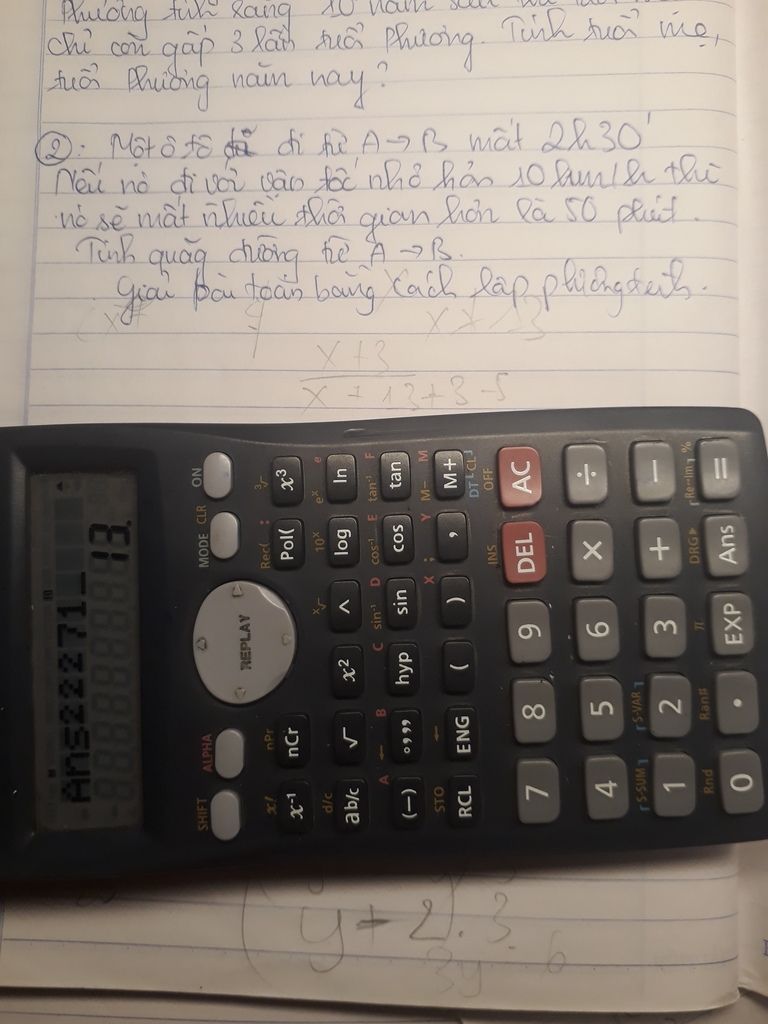 Phương tính rằng 10 năm sau
chỉ còn gấp 3 lần tuổi Phương. Tính tuổi mẹ,
tuổi Phương năm nay?
②: Một ô tô đi từ A → B mất 2h30'
Nếu nó đi với vận tốc nhỏ hơn 10 km/h thì
nó sẽ mất nhiều thời gian hơn là 50 phút.
Tính quãg đường từ A → B.
Giải bài toán bằng cách lập phương trình.
x + 3
x + 13 + 3 - 5
Ans22271
13.
ON
MODE CLR
REPLAY
ALPHA
SHIFT
Rec( :
x³ Pol( nCr x⁻¹
nPr x!
ln log ^ x² √ ab/c
eˣ e 10ˣ d/c
tan cos sin hyp °,,, (–)
tan⁻¹ F cos⁻¹ E sin⁻¹ D C B A
M+ , ) ( ENG RCL
M– M ; Y X STO
DT CL
AC DEL 9 8 7
OFF INS
÷ × 6 5 4
− + 3 2 1
S-VAR S-SUM
= Ans EXP • 0
Re↔Im % DRG► π Ran# Rnd
y + 2) . 3
3y 6